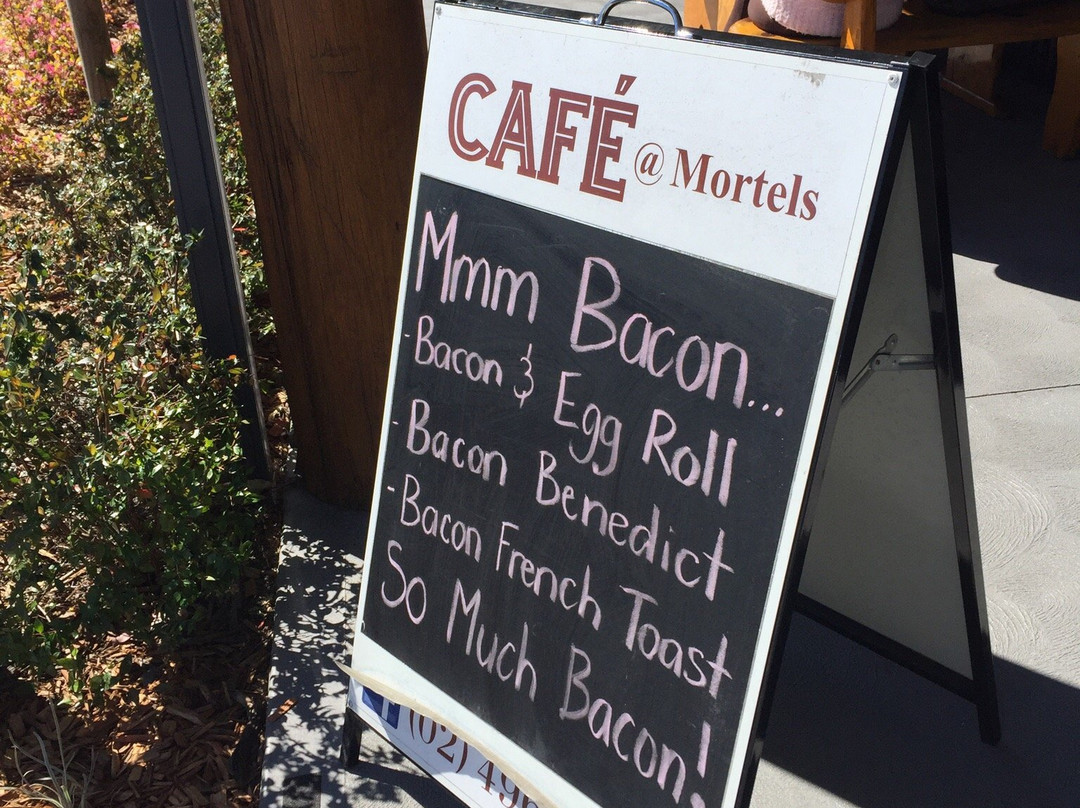 CAFÉ @ Mortels
Mmm Bacon...
-Bacon & Egg Roll
-Bacon Benedict
-Bacon French Toast
So Much Bacon!
f (02) 49